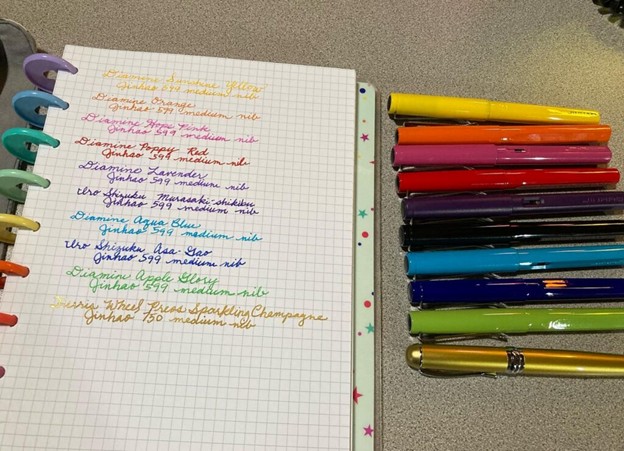 Diamine Sunshine Yellow
Jinhao 599 medium nib
Diamine Orange
Jinhao 599 medium nib
Diamine Hope Pink
Jinhao 599 medium nib
Diamine Poppy Red
Jinhao 599 medium nib
Diamine Lavender
Jinhao 599 medium nib
Iro Shizuku Murasaki-shikibu
Jinhao 599 medium nib
Diamine Aqua Blue
Jinhao 599 medium nib
Iro Shizuku Asa-Gao
Jinhao 599 medium nib
Diamine Apple Glory
Jinhao 599 medium nib
Ferris Wheel Press Sparkling Champagne
Jinhao 750 medium nib